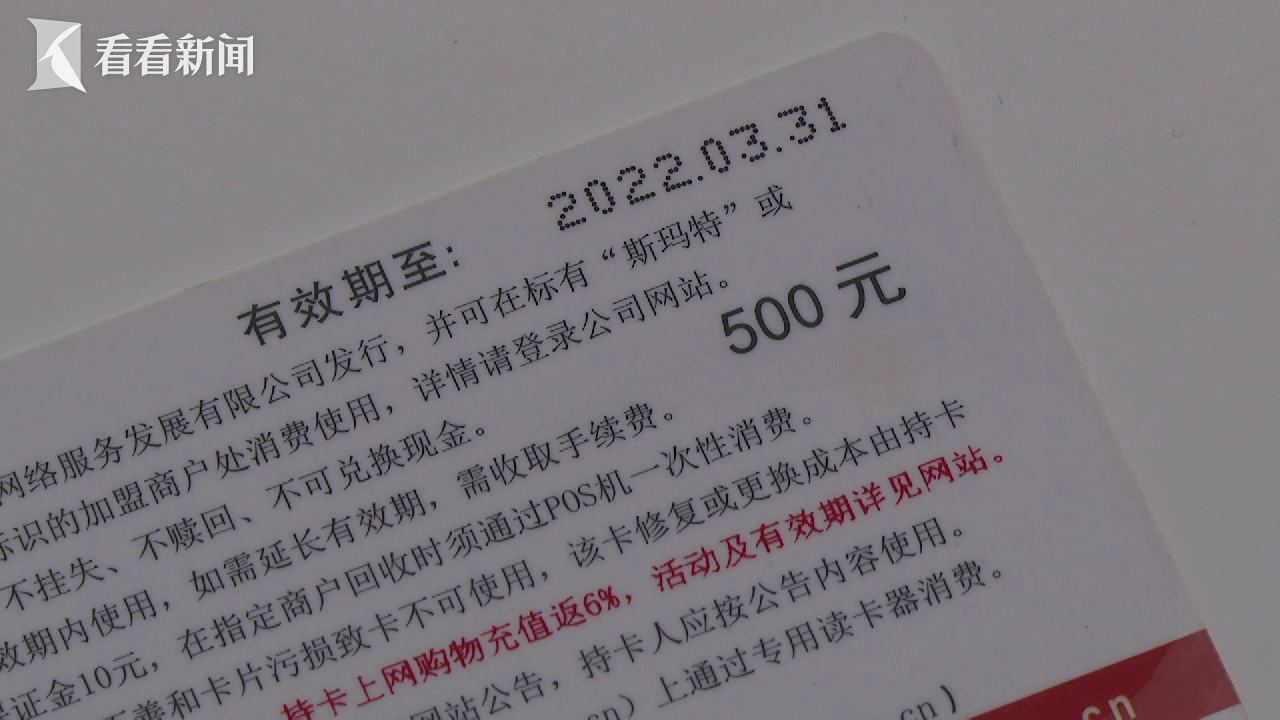 看看新闻
有效期至: 2022.03.31
网络服务发展有限公司发行，并可在标有“斯玛特”或
标识的加盟商户处消费使用，详情请登录公司网站。
500 元
不挂失、不赎回、不可兑换现金。
效期内使用，如需延长有效期，需收取手续费。
证金10元，在指定商户回收时须通过POS机一次性消费。
善和卡片污损致卡不可使用，该卡修复或更换成本由持卡
持卡上网购物充值返6%，活动及有效期详见网站。
网站公告，持卡人应按公告内容使用。
cn）上通过专用读卡器消费。
cn)
cn